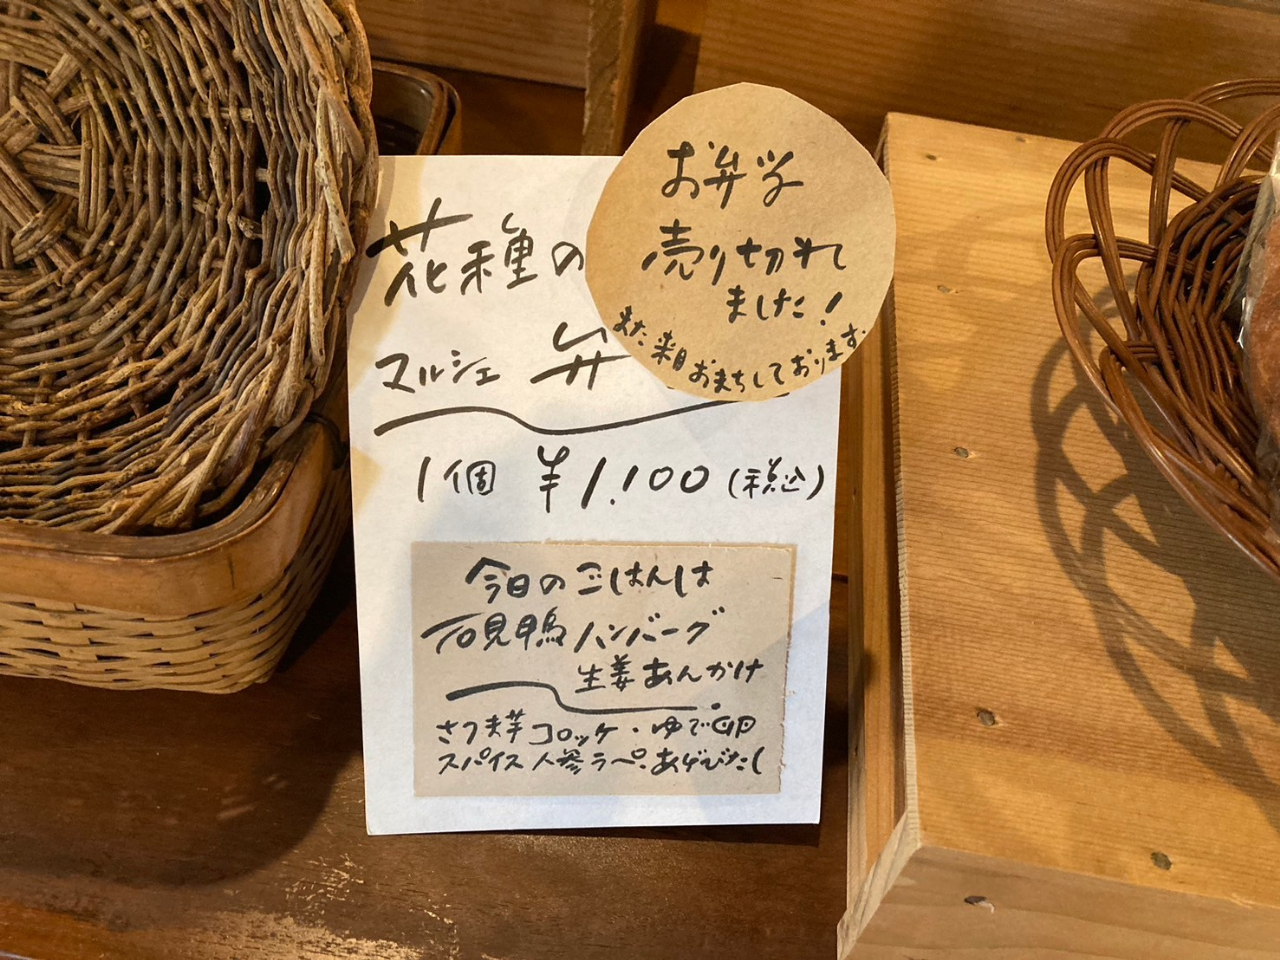 花種の
マルシェ 弁
1個 ¥1,100 (税込)
お弁当
売り切れ
ました!
また来月おまちしております。
今日のごはんは
石見鴨ハンバーグ
生姜あんかけ
さつま芋コロッケ・ゆで卵
スパイス人参ラペ・あげびたし